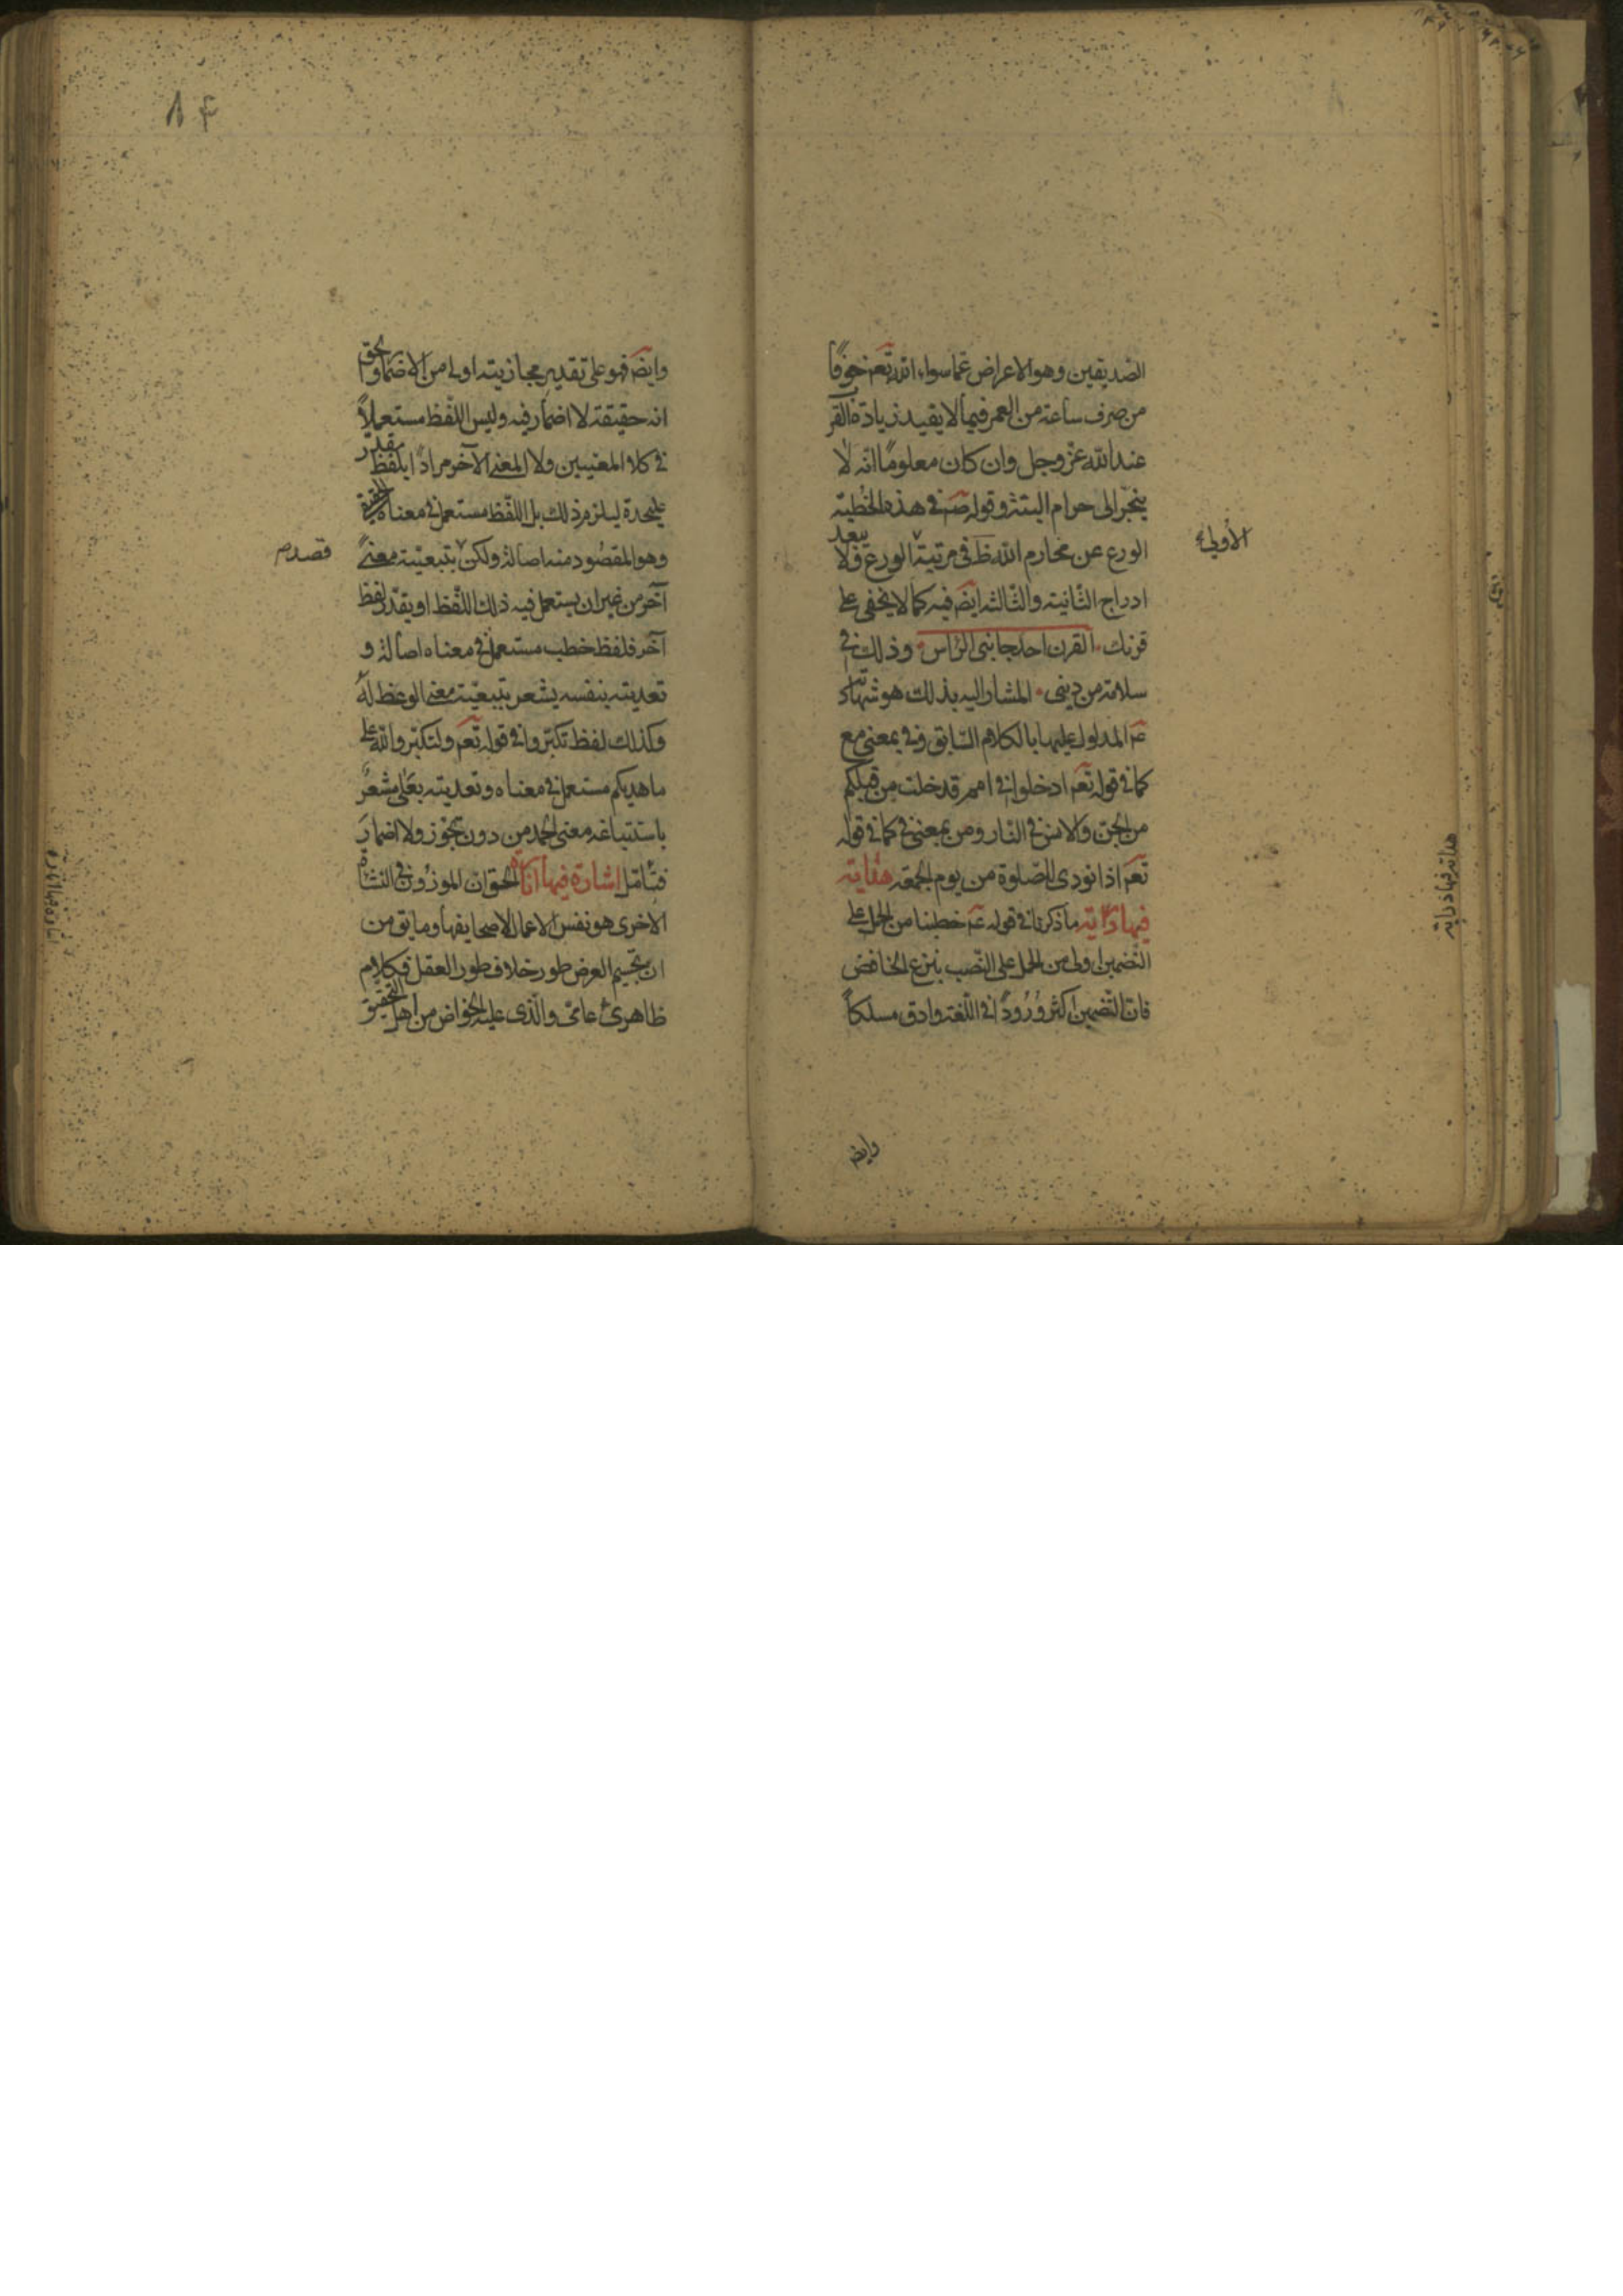 الصديقين وهو الاعراض عما سواء الله تعم خوفًا
من صرف ساعة من العمر فيما لا يفيد زيادة القرب
عند الله عز وجل وان كان معلومًا انه لا
ينجر الى حرام البتة وقوله صم في هذه الخطبة
الورع عن محارم الله ظ في مرتبة الورع ولا يبعد
الأولى
ادراج الثانية والثالثة ايضم فيه كما لا يخفى على
قرنك القرن احد جانبى الرأس وذلك في
سلامة من دينى المشار اليه بذلك هو شهادته
عم المدلول عليها بالكلام السابق وفي بمعنى مع
كما في قوله تعم ادخلوا في امم قد خلت من قبلكم
من الجن والانس في النار ومن بمعنى في كما في قوله
تعم اذا نودى للصلوة من يوم الجمعة هداية
فيها دراية ما ذكرنا في قوله عم خطبنا من الحمل على
التضمين اولى من الحمل على النصب بنزع الخافض
فان التضمين اكثر ورودًا في اللغة وادق مسلكًا
وايضم
هداية فيها دراية
٨٤
وايضم فهو على تقدير مجازيته اولى من الاضمار والحق
انه حقيقة لا اضمار فيه وليس اللفظ مستعملًا
في كلا المعنيين ولا المعنى الآخر مرادًا بلفظ مقدر
عليحدة ليلزم ذلك بل اللفظ مستعمل في معناه الحقيقى
وهو المقصود منه اصالة ولكن بتبعيته معنىً
قصد م
آخر من غير ان يستعمل فيه ذلك اللفظ او يقدر لفظ
آخر فلفظ خطب مستعمل في معناه اصالة و
تعديته بنفسه يشعر بتبعيته معنى الوعظ له
وكذلك لفظ تكبروا في قوله تعم ولتكبروا الله على
ما هديكم مستعمل في معناه وتعديته بعلى مشعر
باستتباعه معنى الحمد من دون تجوز ولا اضمار
فتأمل اشارة فيها انارة الحق ان الموزون في النشأة
الاخرى هو نفس الاعمال لا صحايفها وما يق من
ان تجسيم العرض طور خلاف طور العقل فكلام
ظاهرى عامى والذى عليه الخواص من اهل التحقيق
اشارة فيها انارة